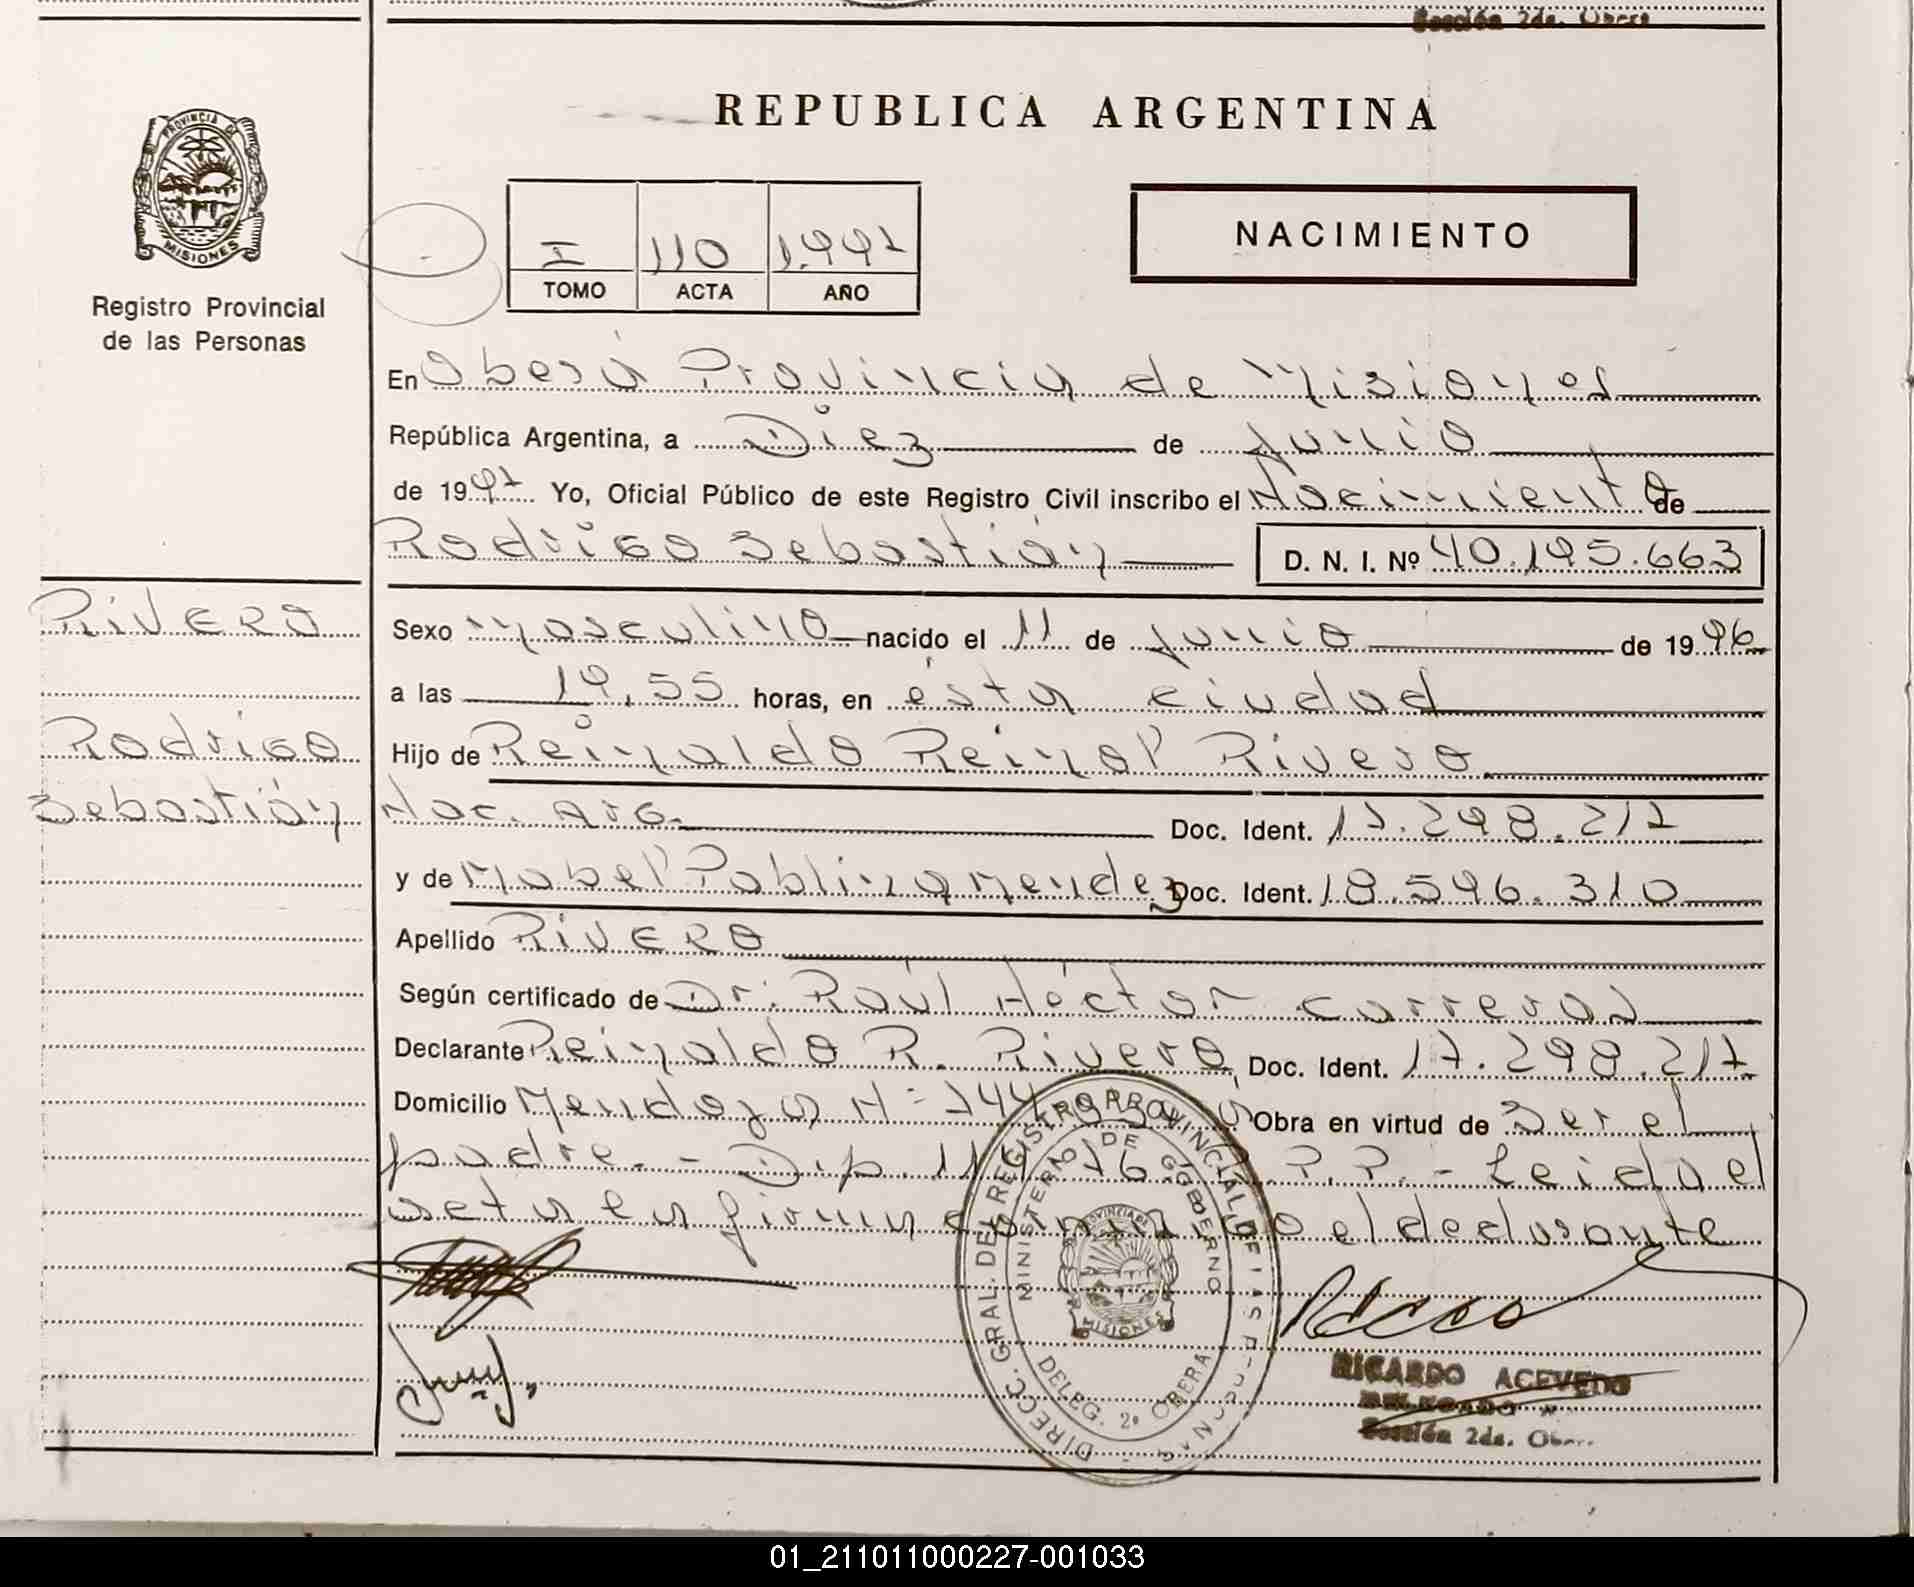 Sección 2da. Obera
REPUBLICA ARGENTINA
PROVINCIA DE
MISIONES
Registro Provincial
de las Personas
I 110 1.997
TOMO ACTA AÑO
NACIMIENTO
En Oberá Provincia de Misiones
República Argentina, a Diez de Junio
de 1997 Yo, Oficial Público de este Registro Civil inscribo el Nacimiento de
Rodrigo Sebastián D. N. I. Nº 40.195.663
RIVERO
Rodrigo
Sebastián
Sexo Masculino nacido el 11 de Junio de 1996
a las 19,55 horas, en ésta ciudad
Hijo de Reinaldo Reinol Rivero
Nac. Arg. Doc. Ident. 17.298.217
y de Mabel Pablina Mendez Doc. Ident. 18.596.310
Apellido RIVERO
Según certificado de Dr. Raúl Héctor Carreras
Declarante Reinaldo R. Rivero Doc. Ident. 17.298.217
Domicilio Mendoza Nº 744 Obra en virtud de Ser el
padre. - Dip. R.P.P. - Leida el
acta la firma el declarante
DIRECC. GRAL. DEL REGISTRO PROVINCIAL DE LAS PERSONAS
MINISTERIO DE GOBIERNO
PROVINCIA DE
MISIONES
DELEG. 2ª OBERA
RICARDO ACEVEDO
DELEGADO
Sección 2da. Obera
01_211011000227-001033